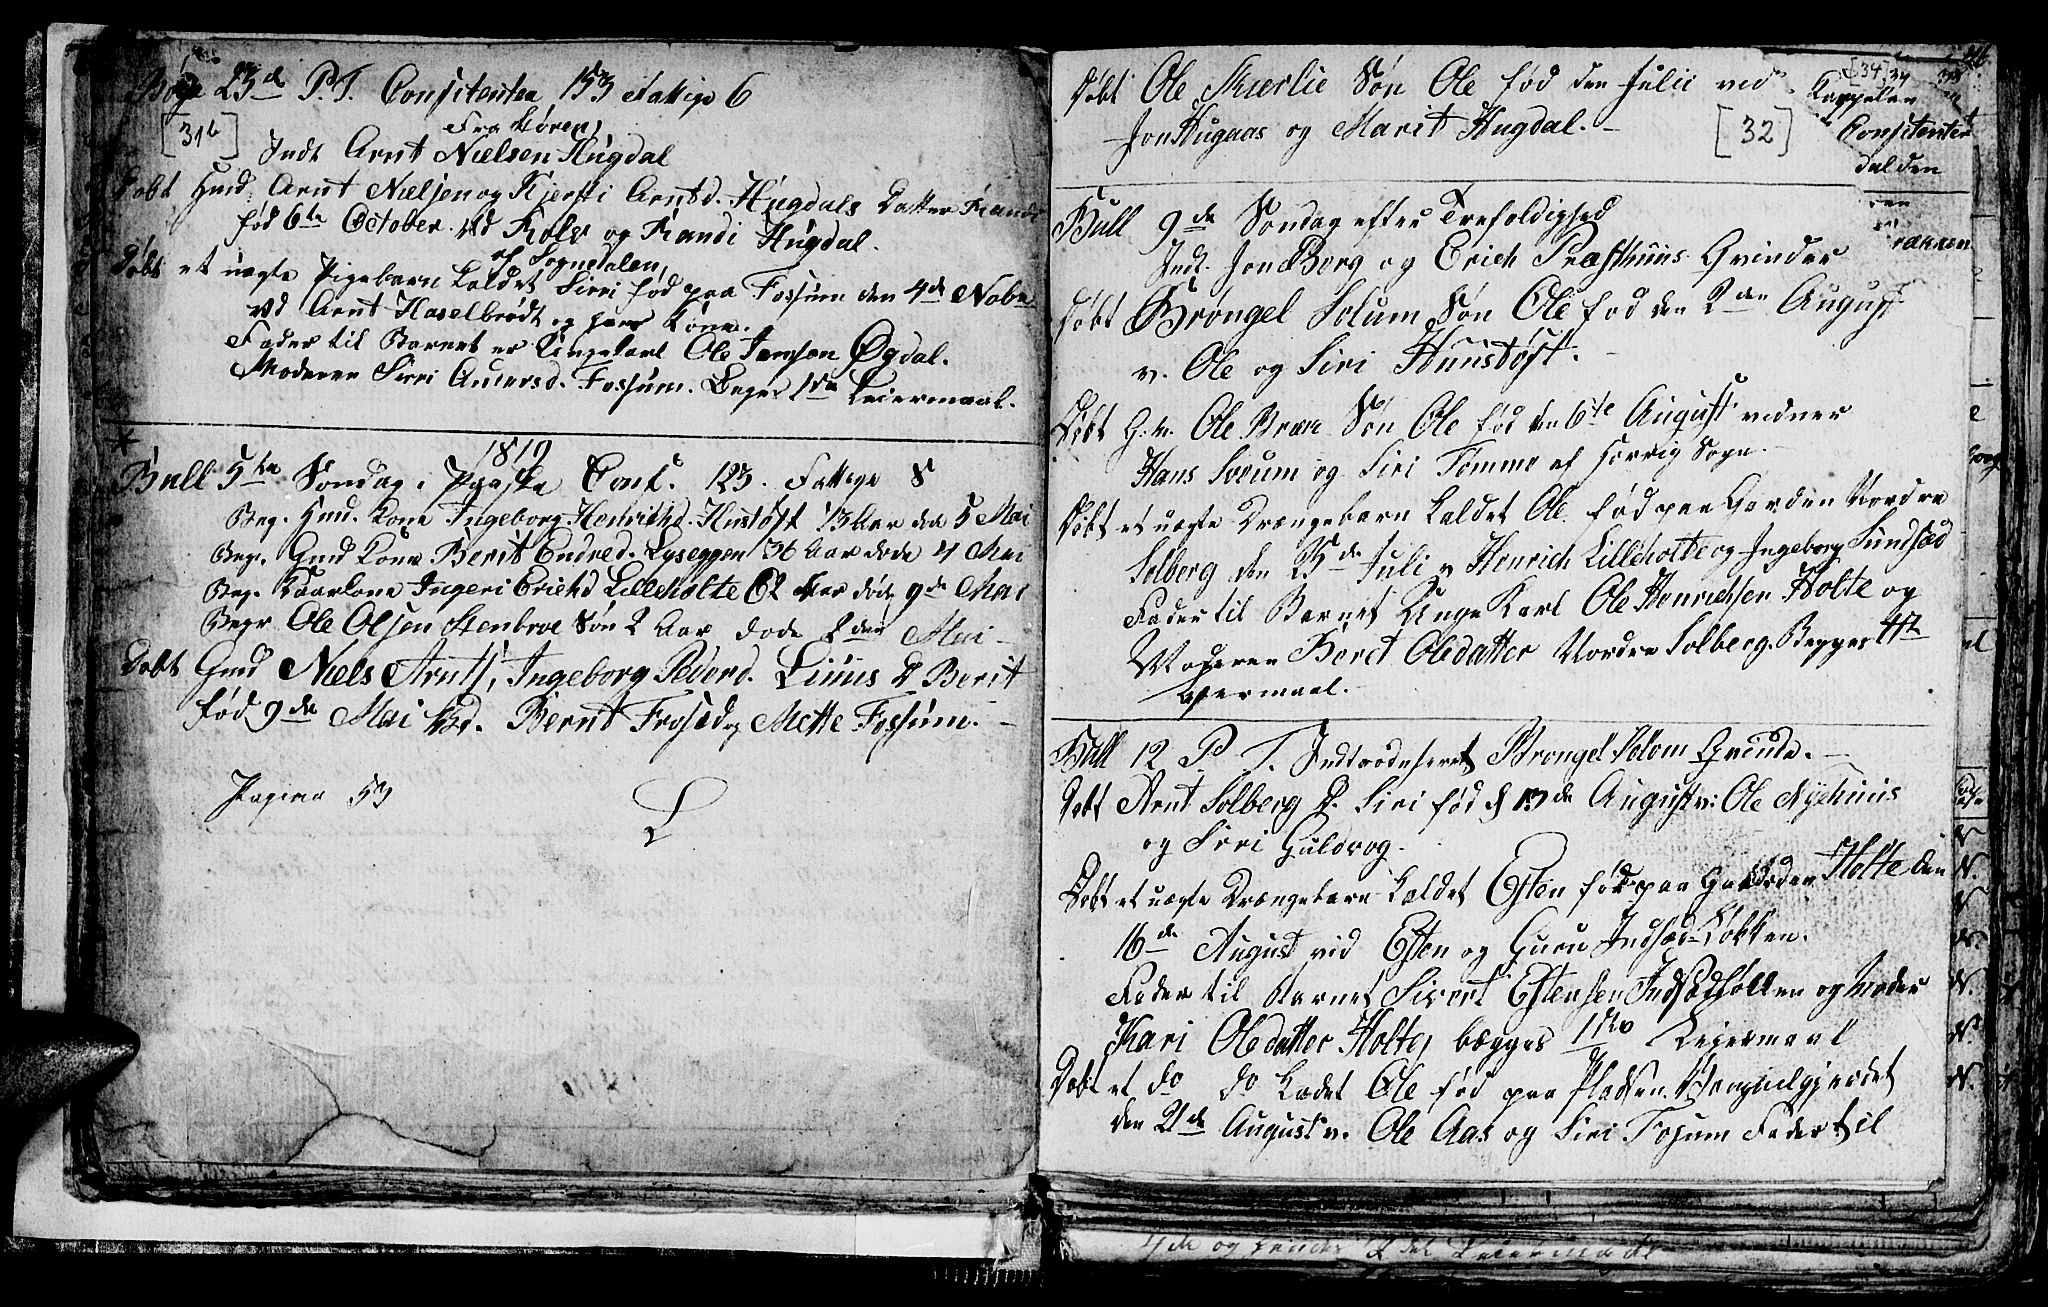 23de P. T. Confitenter 153 Fattige 6
[31b]
Fra Støren,
Indt Arnt Nielsen Hugdal
Døbt Gmd. Arnt Nielsen og Kjersti Arntd. Hugdals Datter Randi
fød 6te October. vd Kolv og Randi Hugdal.
af Sognedalen,
Døbt et uægte Pigebarn kaldet Sirri fød paa Fossum den 4de Nobr
vd Arnt Haselbrødt og hans Kone.
Fader til Barnet er Ungekarl Ole Jemsen Øgdal.
Moderen Sirri Anersd. Fossum. Beges 1ste Leiermaal.
1819
Bull 5te Søndag i Paaske Conf. 123. Fattige 8
Beg. Hmd. Kone Ingeborg Henrichsd. Hustøft 73 Aar død 5 Mai
Beg. Gmd Kone Berit Endred. Lyseggen 36 Aar døde 4 Mai
Beg. Kaarkone Ingeri Erichsd Lilleholte 82 Aar døde 9de Mai
Begr Ole Olsen Stenbroe Søn 2 Aar døde 8den Mai
Døbt Gmd Niels Arnts, Ingeborg Pederd. Liuus D Berit
fød 9de Mai Vd. Bernt Frøset og Mette Fossum.
Pagina 53
Døbt Ole Skuerlie Søn Ole fød den Julii ved
Jon Hugaas og Marit Hugdal.
[32]
[34]
Kappelan
Confitenter
dalden
Bull 9de Søndag efter Trefoldighed
Indt. Jon Berg og Erich Præsthuus Qvinder
Døbt Brøngel Solum Søn Ole fød den 2den August
v. Ole og Siri Huustøft.
Døbt G.m. Ole Bræn Søn Ole fød den 6te August vidner
Hans Sorum og Siri Tømme af Horrig Sogn
Døbt et uægte Drængebarn kaldet Ole fød paa Gaarden Nordre
Solberg den 25de Juli v Henrich Lilleholte og Ingeborg Sundsæd
Fader til Barnet Unge Karl Ole Henrichsen Holte og
Moderen Beret Olsdatter Nordre Solberg. Begges 1ste
Leiermaal.
Bull 12 P. T. Indtroduseret Brøngel Solom Qvinde.
Døbt Arnt Solberg D. Siri fød d 13de August v: Ole Nyehuus
og Siri Guldvog.
Døbt et uægte Drængebarn kaldet Esten fød paa Gaarden Holte den
16de August vid Esten og Guru Indsæd-Løkken.
Fader til Barnet Sivert Estensen Indsædløkken og Moder
Kari Olsdatter Holte, begges 1ste Leiermaal
Døbt et do do kadet Ole fød paa Pladsen gjerdet
den 21de August v. Ole Aas og Siri Fosum Fader til
Leiermaal